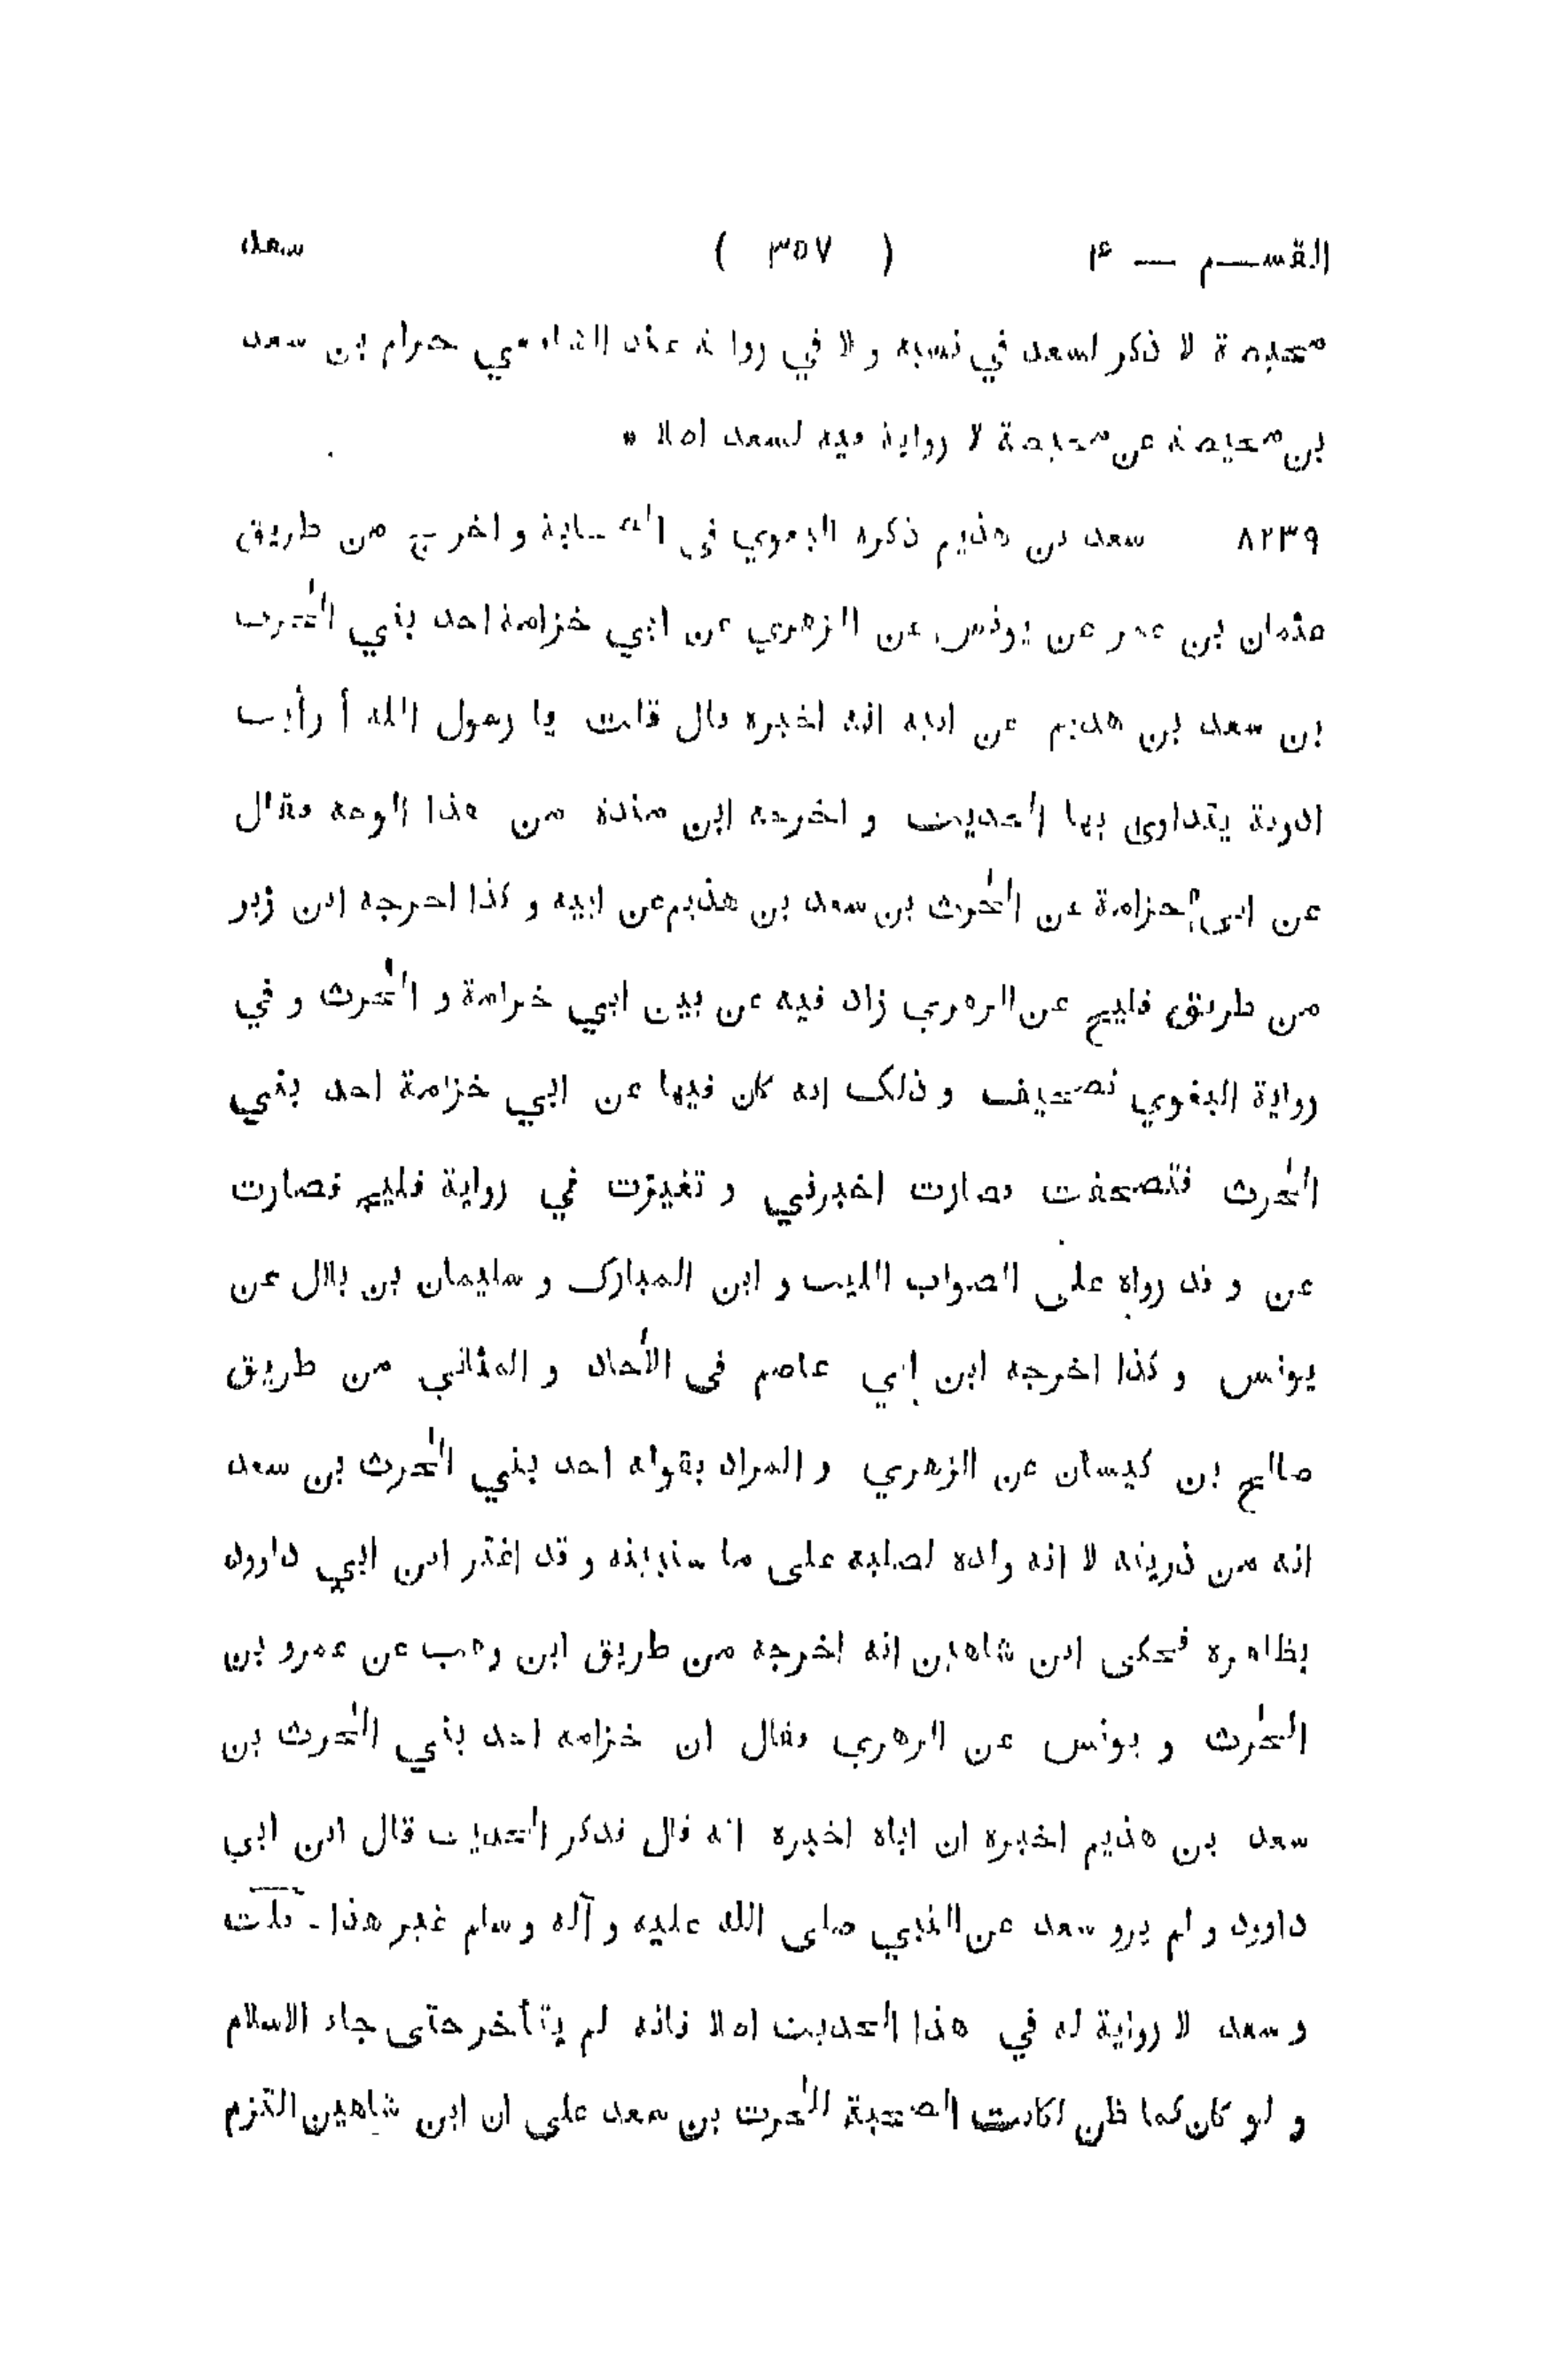 القسم — ۴ ( ٣٥٧ ) سعد
محيصة لا ذكر لسعد في نسبه و لا في رواية عند الشافعي حرام بن سعد
بن محيصة عن محيصة لا رواية فيه لسعد اصلا *
٨٢٣٩ سعد بن هذيم ذكره البغوي في الصحابة و اخرج من طريق
عثمان بن عمر عن يونس عن الزهري عن ابي خزامة احد بني الحٰرث
بن سعد بن هذيم عن ابيه انه اخبره قال قلت يا رسول الله أ رأيت
ادوية يتداوى بها الحديث و اخرجه ابن مندة من هذا الوجه فقال
عن ابي خزامة عن الحٰرث بن سعد بن هذيم عن ابيه و كذا اخرجه ابن زبر
من طريق فليح عن الزهري زاد فيه عن بين ابي خزامة و الحٰرث و في
رواية البغوي تصحيف و ذلك انه كان فيها عن ابي خزامة احد بني
الحٰرث فتصحفت فصارت اخبرني و تغيرت في رواية فليح فصارت
عن و قد رواه على الصواب الليث و ابن المبارك و سليمان بن بلال عن
يونس و كذا اخرجه ابن ابي عاصم في الأحاد و المثاني من طريق
صالح بن كيسان عن الزهري و المراد بقوله احد بني الحٰرث بن سعد
انه من ذريته لا انه ولده لصلبه على ما سنبينه و قد اغتر ابن ابي داوود
بظاهره فحكى ابن شاهين انه اخرجه من طريق ابن وهب عن عمرو بن
الحٰرث و يونس عن الزهري فقال ان خزامة احد بني الحٰرث بن
سعد بن هذيم اخبره ان اباه اخبره انه قال فذكر الحديث قال ابن ابي
داوود و لم يرو سعد عن النبي صلى الله عليه و آله و سلم غير هذا - قلت
و سعد لا رواية له في هذا الحديث اصلا فانه لم يتأخر حتى جاء الاسلام
و لو كان كما ظن لكانت الصحبة للحٰرث بن سعد على ان ابن شاهين التزم